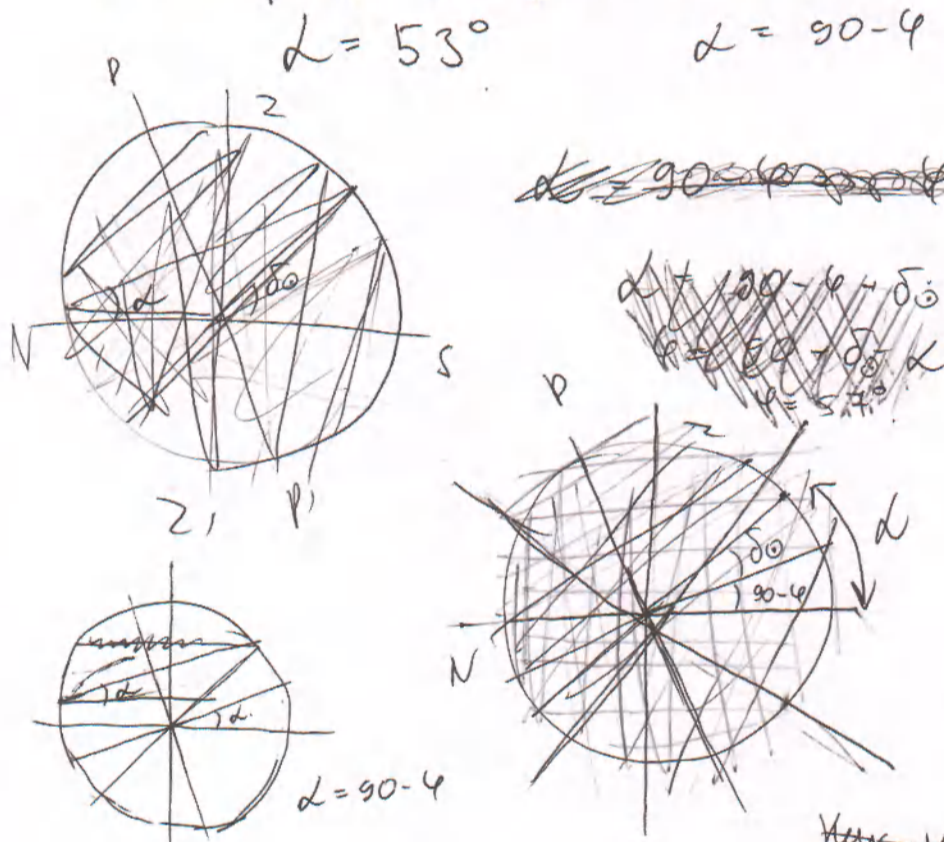 α = 53°
α = 90-φ
P
Z
α
δ☉
N
S
Z'
P'
α = 90 - φ - δ☉
φ = 90 - δ☉ - α
φ = 57°
P
Z
α
δ☉
90-φ
N
α
α
α = 90-φ